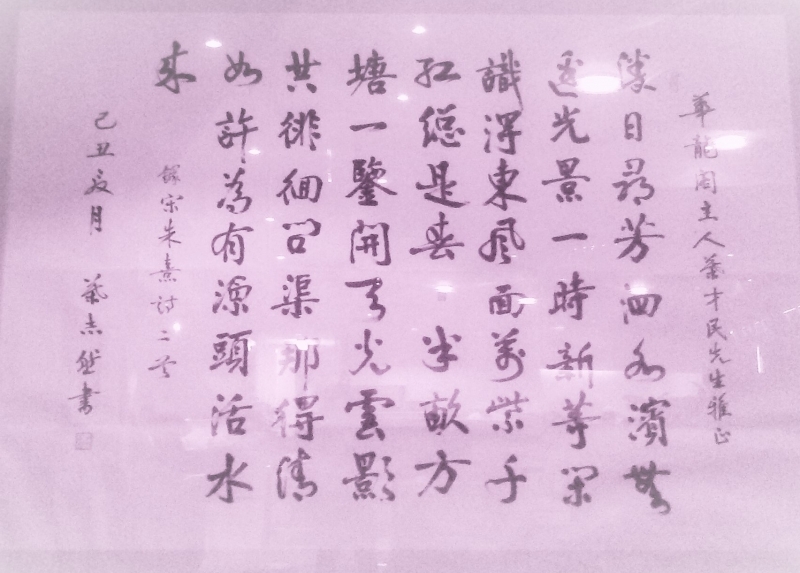 華龍閣主人葉才民先生雅正
勝日尋芳泗水濱無
邊光景一時新等閒
識得東風面萬紫千
紅總是春 半畝方
塘一鑒開天光雲影
共徘徊問渠那得清
如許為有源頭活水
來
錄宋朱熹詩二首
己丑夏月 葉志書